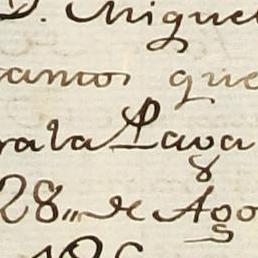 D. Miguel
tamos que
rala Paga
28,, de Ago